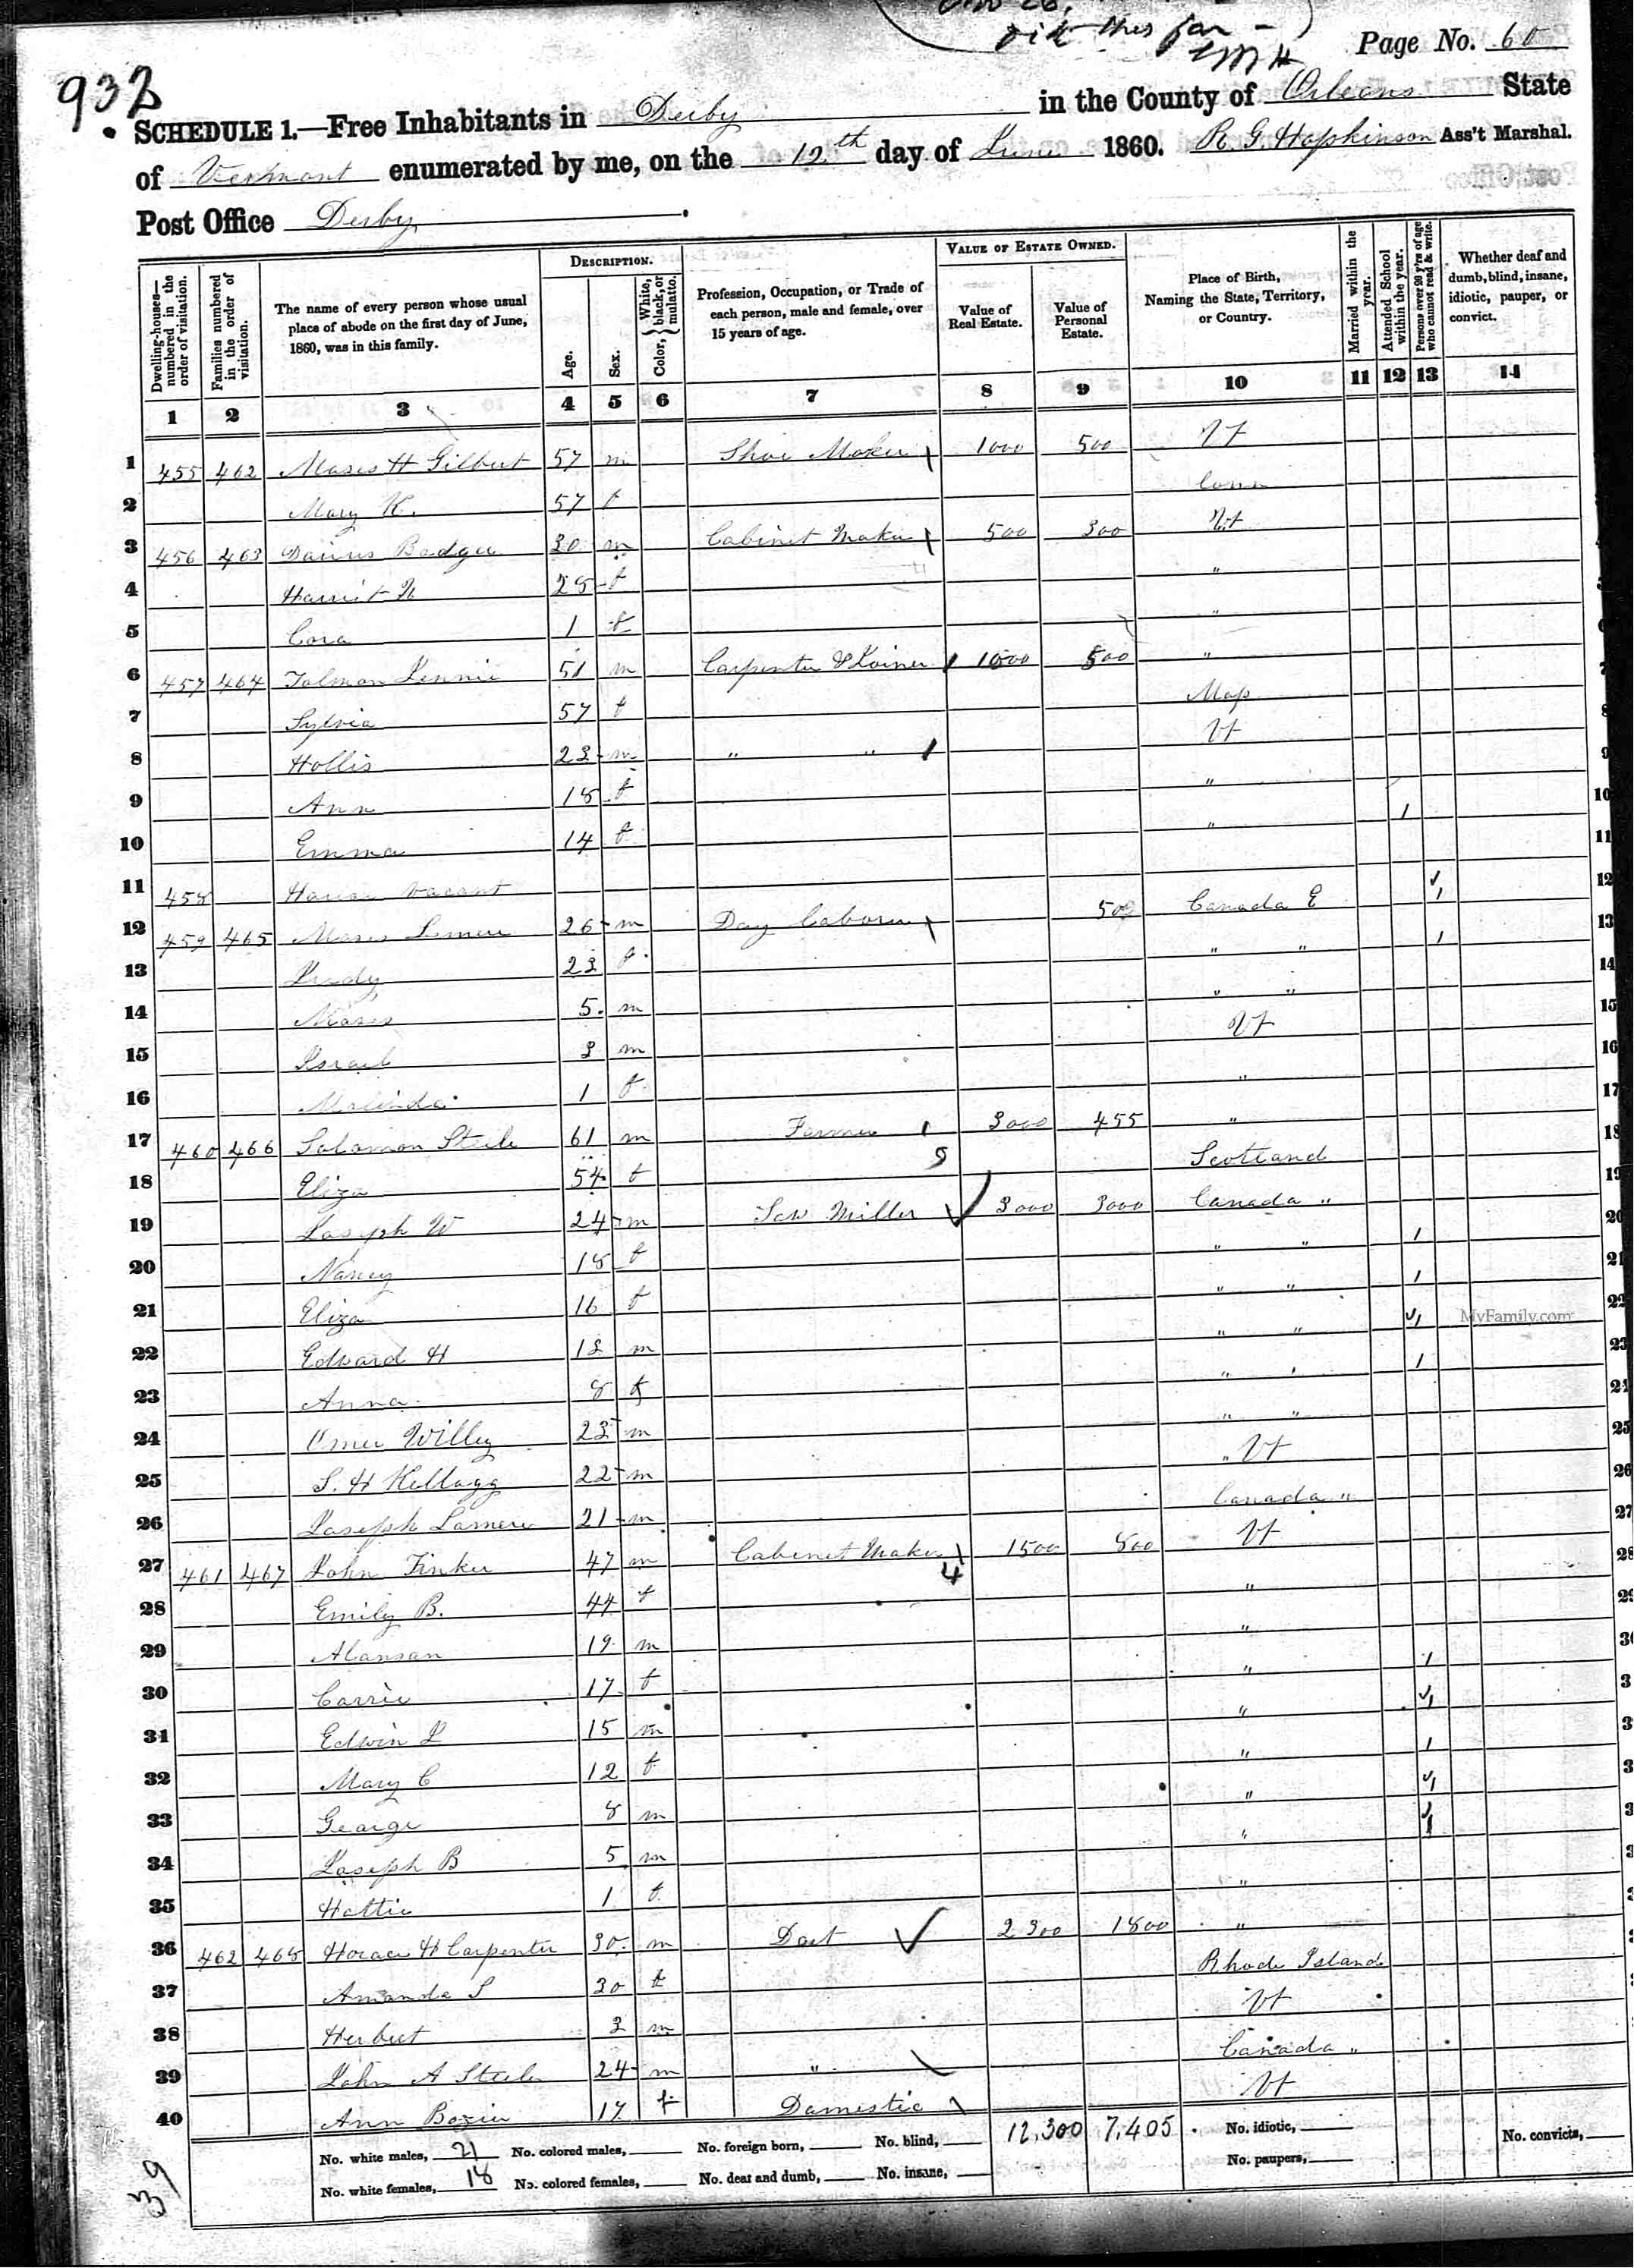 932
Page No. 60
SCHEDULE 1.—Free Inhabitants in Derby in the County of Orleans State
of Vermont enumerated by me, on the 12th day of June 1860. R. G. Hopkinson Ass't Marshal.
Post Office Derby
Dwelling-houses—numbered in the order of visitation.
Families numbered in the order of visitation.
The name of every person whose usual place of abode on the first day of June, 1860, was in this family.
DESCRIPTION.
Age.
Sex.
Color, { White, black, or mulatto.
Profession, Occupation, or Trade of each person, male and female, over 15 years of age.
VALUE OF ESTATE OWNED.
Value of Real Estate.
Value of Personal Estate.
Place of Birth, Naming the State, Territory, or Country.
Married within the year.
Attended School within the year.
Persons over 20 y'rs of age who cannot read & write.
Whether deaf and dumb, blind, insane, idiotic, pauper, or convict.
1 2 3 4 5 6 7 8 9 10 11 12 13 14
1 455 462 Moses H Gilbert 57 m Shoe Maker 1000 500 Vt
2 Mary K. 57 f Conn
3 456 463 Darius Badger 30 m Cabinet Maker 500 300 Vt
4 Harriet N 28 f "
5 Cora 1 f "
6 457 464 Tolman 51 m Carpenter & Joiner 1000 500 "
7 Sylvia 57 f Mass
8 Hollis 23 m " " Vt
9 Ann 18 f "
10 Emma 14 f " 1
11 458 House vacant
12 459 465 Moses Lemere 26 m Day Laborer 500 Canada E 1
13 23 f " " 1
14 Moses 5 m " "
15 Israel 3 m Vt
16 Malinda 1 f "
17 460 466 Solomon Steele 61 m Farmer 3000 455 "
18 Eliza 54 f Scotland
19 Joseph W 24 m Saw Miller 3000 3000 Canada "
20 Nancy 18 f " " 1
21 Eliza 16 f " " 1
22 Edward H 12 m " " 1
23 Anna 8 f " " 1
24 Omer Willey 23 m " "
25 S. H Kellogg 22 m Vt
26 Joseph Lamere 21 m Canada "
27 461 467 John Tinker 47 m Cabinet Maker 1500 800 Vt
28 Emily B. 44 f "
29 Alanson 19 m "
30 Carrie 17 f " 1
31 Edwin L 15 m " 1
32 Mary C 12 f " 1
33 George 8 m " 1
34 Joseph B 5 m " 1
35 Hattie 1 f "
36 462 468 Horace H Carpenter 30 m Doct 2300 1800 "
37 Amanda S 30 f Rhode Island
38 Herbert 3 m Vt
39 John A Steele 24 m " Canada "
40 Ann 17 f Domestic Vt
No. white males, 21 No. colored males, No. foreign born, No. blind, 12,300 7,405 No. idiotic, No. convicts,
No. white females, 18 No. colored females, No. deaf and dumb, No. insane, No. paupers,
39
MyFamily.com